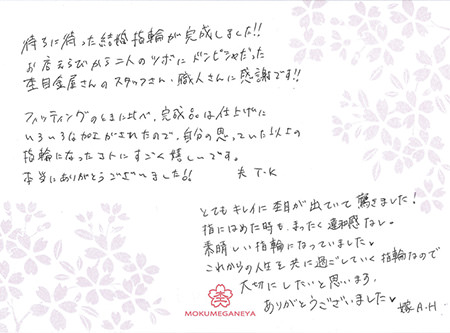 待ちに待った結婚指輪が完成しました!!
お店えらびから二人のツボにドンピシャだった
杢目金屋さんのスタッフさん・職人さんに感謝です!!
フィッティングのときに比べ、完成品は仕上げに
いろいろな加工がされたので、自分の思っていた以上の
指輪になったコトにすごく嬉しいです。
本当にありがとうございました!! 夫 T.K
とてもキレイに杢目が出ていて驚きました!
指にはめた時も、まったく違和感なし。
素晴しい指輪になっていました♥
これからの人生を共に過ごしていく指輪なので
大切にしたいと思います。
ありがとうございました♥ 嫁 A.H
MOKUMEGANEYA